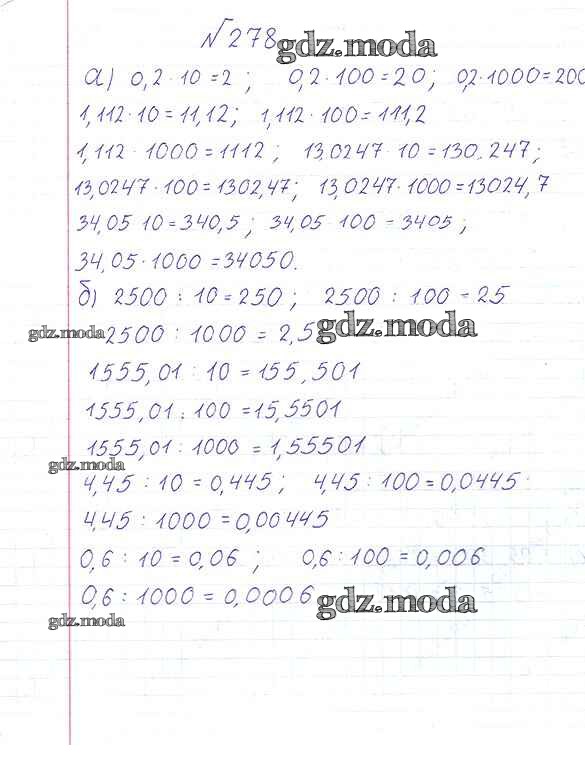 №278 gdz.moda
а) 0,2 · 10 = 2 ; 0,2 · 100 = 20 ; 0,2 · 1000 = 200
1,112 · 10 = 11,12 ; 1,112 · 100 = 111,2
1,112 · 1000 = 1112 ; 13,0247 · 10 = 130,247 ;
13,0247 · 100 = 1302,47 ; 13,0247 · 1000 = 13024,7
34,05 · 10 = 340,5 ; 34,05 · 100 = 3405 ;
34,05 · 1000 = 34050.
б) 2500 : 10 = 250 ; 2500 : 100 = 25
gdz.moda 2500 : 1000 = 2,5 gdz.moda
1555,01 : 10 = 155,501
1555,01 : 100 = 15,5501
1555,01 : 1000 = 1,55501
gdz.moda
4,45 : 10 = 0,445 ; 4,45 : 100 = 0,0445
4,45 : 1000 = 0,00445
0,6 : 10 = 0,06 ; 0,6 : 100 = 0,006
0,6 : 1000 = 0,0006 gdz.moda
gdz.moda